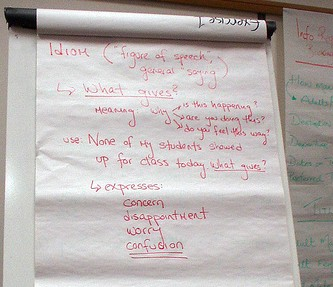 Exercise 1
Idiom ("figure of speech",
general "saying")
↳ What gives?
Meaning Why is this happening?
are you doing this?
do you feel this way?
use: None of my students showed
up for class today. What gives?
↳ expresses:
concern
disappointment
worry
confusion
Info